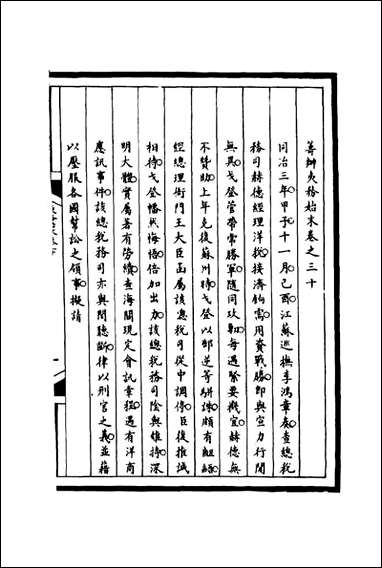 籌辦夷務始末卷之三十
同治三年甲子十一月己酉江蘇巡撫李鴻章奏查總稅
務司赫德經理洋稅接濟餉需用資戰勝即與宣力行間
無異戈登管帶常勝軍隨同攻勦每遇緊要機宜赫德無
不贊助上年克復蘇州時戈登以郜逆等駢誅頗有齟齬
經總理衙門王大臣函屬該總稅司從中調停臣復推誠
相待戈登幡然悔悟倍加出力該總稅務司陰與維持深
明大體實屬著有勞績查海關現定會訊章程遇有洋商
應訊事件該總稅務司亦與聞聽斷律以刑官之義並藉
以壓服各國幫訟之領事擬請